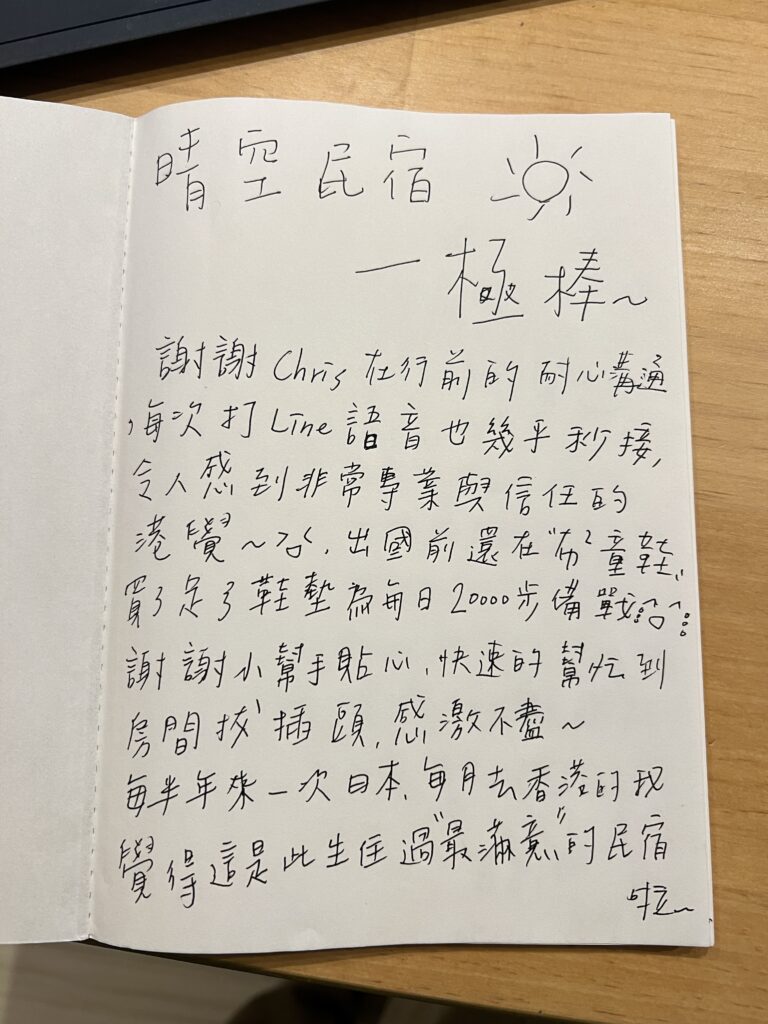 晴空民宿
一極棒~
謝謝Chris在行前的耐心溝通
,每次打Line語音也幾乎秒接,
令人感到非常專業與信任的
感覺~ 出國前還在
買了足了鞋墊為每日20000步備戰
謝謝小幫手貼心、快速的幫忙到
房間找插頭,感激不盡~
每半年來一次日本、每月去香港的我
覺得這是此生住過"最滿意"的民宿
啦~